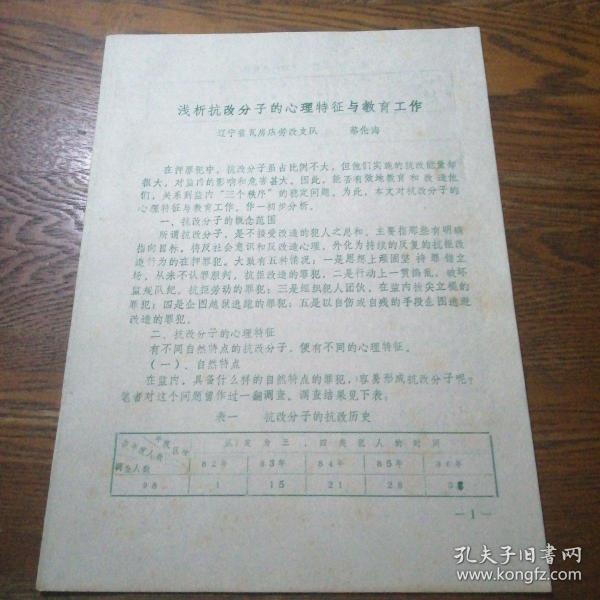 浅析抗改分子的心理特征与教育工作
辽宁省瓦房店劳改支队 郭伦海
在押罪犯中，抗改分子虽占比例不大，但他们实施的抗改能量却
很大，对监内的影响和危害甚大。因此，能否有效地教育和改造他
们，关系到监内“三个秩序”的稳定问题。为此，本文对抗改分子的
心理特征与教育工作，作一初步分析。
一、抗改分子的概念范围
所谓抗改分子，是不接受改造的犯人之总和。主要指那些有明确
指向目标，将反社会意识和反改造心理，外化为持续的反复的抗拒改
造行为的在押罪犯。大致有五种情况：一是思想上顽固坚持罪错立
场，从来不认罪服判，抗拒改造的罪犯，二是行动上一贯捣乱，破坏
监规队纪，抗拒劳动的罪犯；三是组织犯人团伙，在监内挑尖立棍的
罪犯；四是企图越狱逃跑的罪犯；五是以自伤或自残的手段企图逃避
改造的罪犯。
二、抗改分子的心理特征
有不同自然特点的抗改分子，便有不同的心理特征。
（一）、自然特点
在监内，具备什么样的自然特点的罪犯，容易形成抗改分子呢？
笔者对这个问题曾作过一翻调查。调查结果见下表：
表一 抗改分子的抗改历史
年度区分
各年度人数
调查人数
认定为三、四类犯人的时间
82年 83年 84年 85年 86年
98 1 15 21 28
—1—
孔夫子旧书网
www.kongfz.com